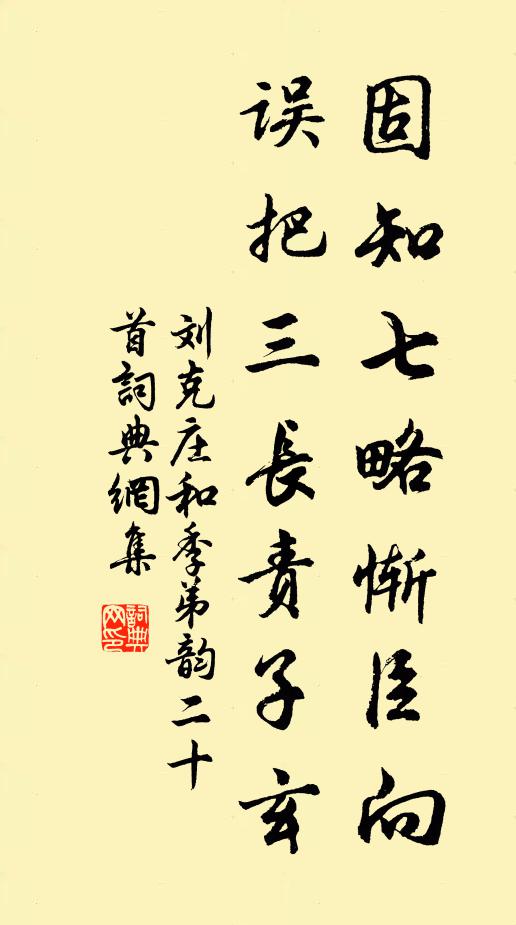 固知七略慚臣向
误把三長責子玄
刘克庄和季弟韵二十
首詞典網集
詞典网印